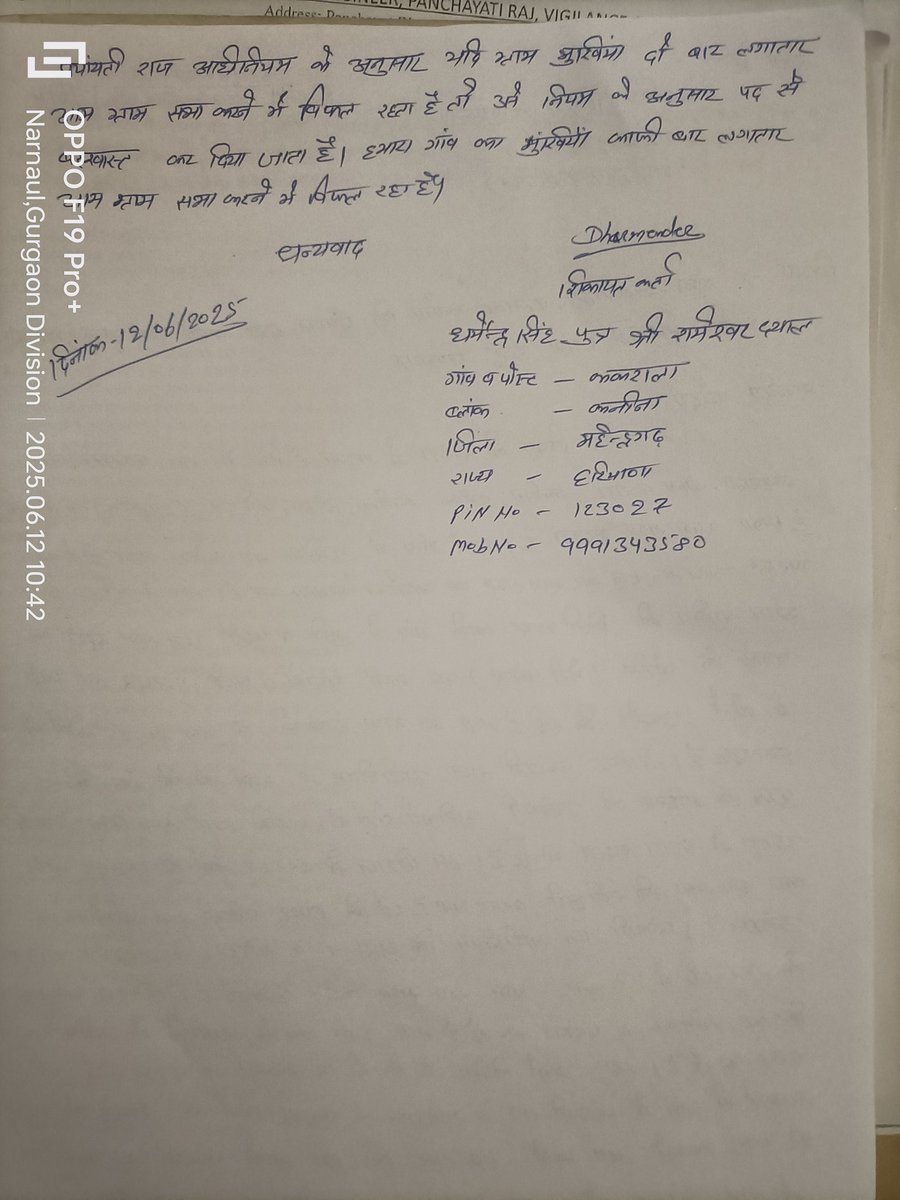 GINEER, PANCHAYATI RAJ, VIGILANCE
Address:
पंचायती राज अधिनियम के अनुसार यदि ग्राम मुखियां दो बार लगातार
आम ग्राम सभा करने में विफल रहता है तो उसे नियम के अनुसार पद से
बरखास्त कर दिया जाता है। हमारा गांव का मुखियां काफी बार लगातार
आम ग्राम सभा करने में विफल रहा है।
धन्यवाद
Dharmender
शिकायत कर्ता
दिनांक-12/06/2025
धर्मेन्द्र सिंह पुत्र श्री रामेश्वर दयाल
गांव व पोस्ट - ककराला
ब्लॉक - कनीना
जिला - महेन्द्रगढ़
राज्य - हरियाणा
PIN No - 123027
Mob No - 9991343580
OPPO F19 Pro+
Narnaul,Gurgaon Division | 2025.06.12 10:42